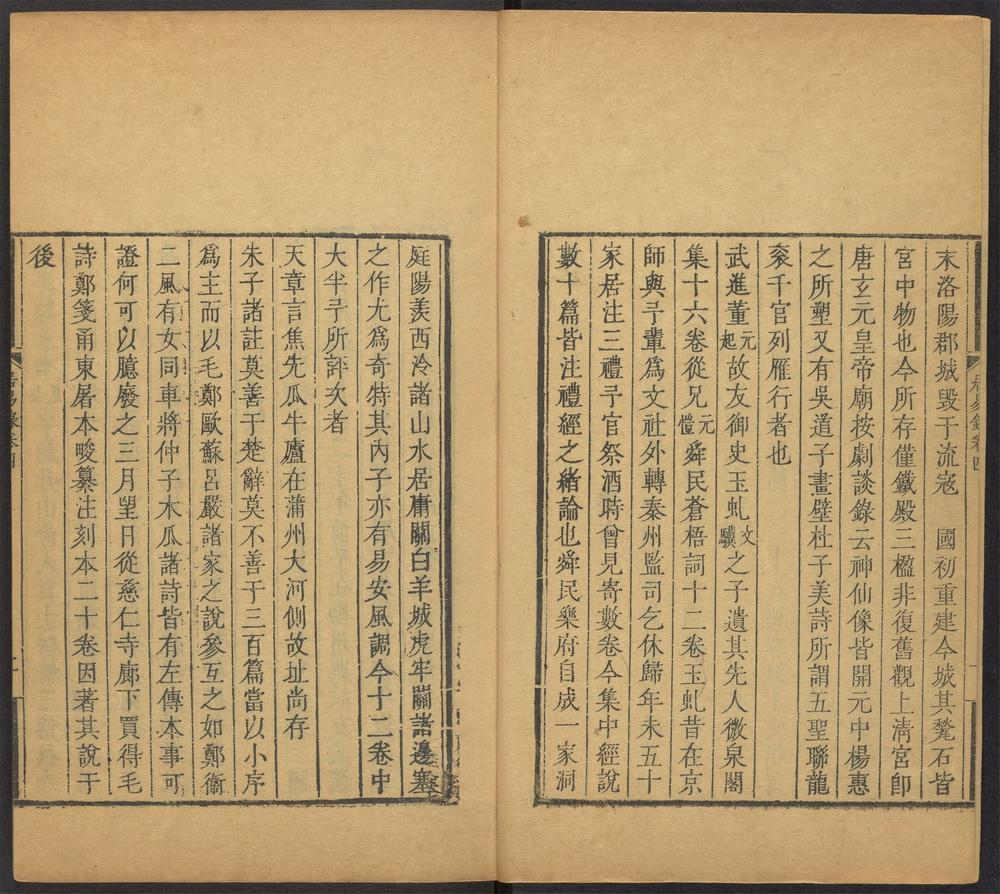 末洛陽郡城毀于流寇　國初重建今城其甃石皆
宮中物也今所存僅鐵殿三楹非復舊觀上清宮卽
唐玄元皇帝廟按劇談錄云神仙像皆開元中楊惠
之所塑又有吳道子畫壁杜子美詩所謂五聖聯龍
袞千官列雁行者也
武進董元起故友御史玉虬文驥之子遺其先人微泉閣
集十六卷從兄元愷舜民蒼梧詞十二卷玉虬昔在京
師與予輩爲文社外轉秦州監司乞休歸年未五十
家居注三禮予官祭酒時曾見寄數卷今集中經說
數十篇皆注禮經之緒論也舜民樂府自成一家洞
居易錄卷四
庭陽羨西泠諸山水居庸關白羊城虎牢關諸邊塞
之作尤爲奇特其內子亦有易安風調今十二卷中
大半予所評次者
天章言焦先瓜牛廬在蒲州大河側故址尚存
朱子諸註莫善于楚辭莫不善于三百篇當以小序
爲主而以毛鄭歐蘇呂嚴諸家之說參互之如鄭衛
二風有女同車將仲子木瓜諸詩皆有左傳本事可
證何可以臆廢之三月望日從慈仁寺廊下買得毛
詩鄭箋甬東屠本畯纂注刻本二十卷因著其說于
後
居易錄卷四